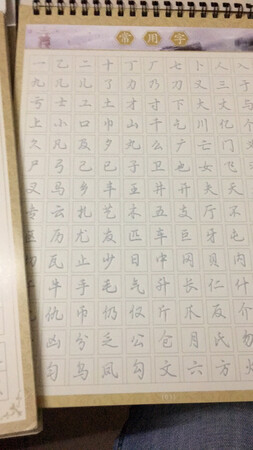 常用字
一乙二十丁厂七卜人入
九几儿了力乃刀又三于
亏士工土才寸下大丈与
上小口巾山千乞川亿个
久凡及夕丸么广亡门义
尸弓己已子卫也女飞刃
叉马乡丰王井开夫天
云扎艺木五支厅不
历尤友匹车巨牙屯
瓦止少日中冈贝内
牛手毛气升长仁什
仇币仍仅斤爪反介
凶分乏公仓月氏勿
匀乌凤勾文六方火